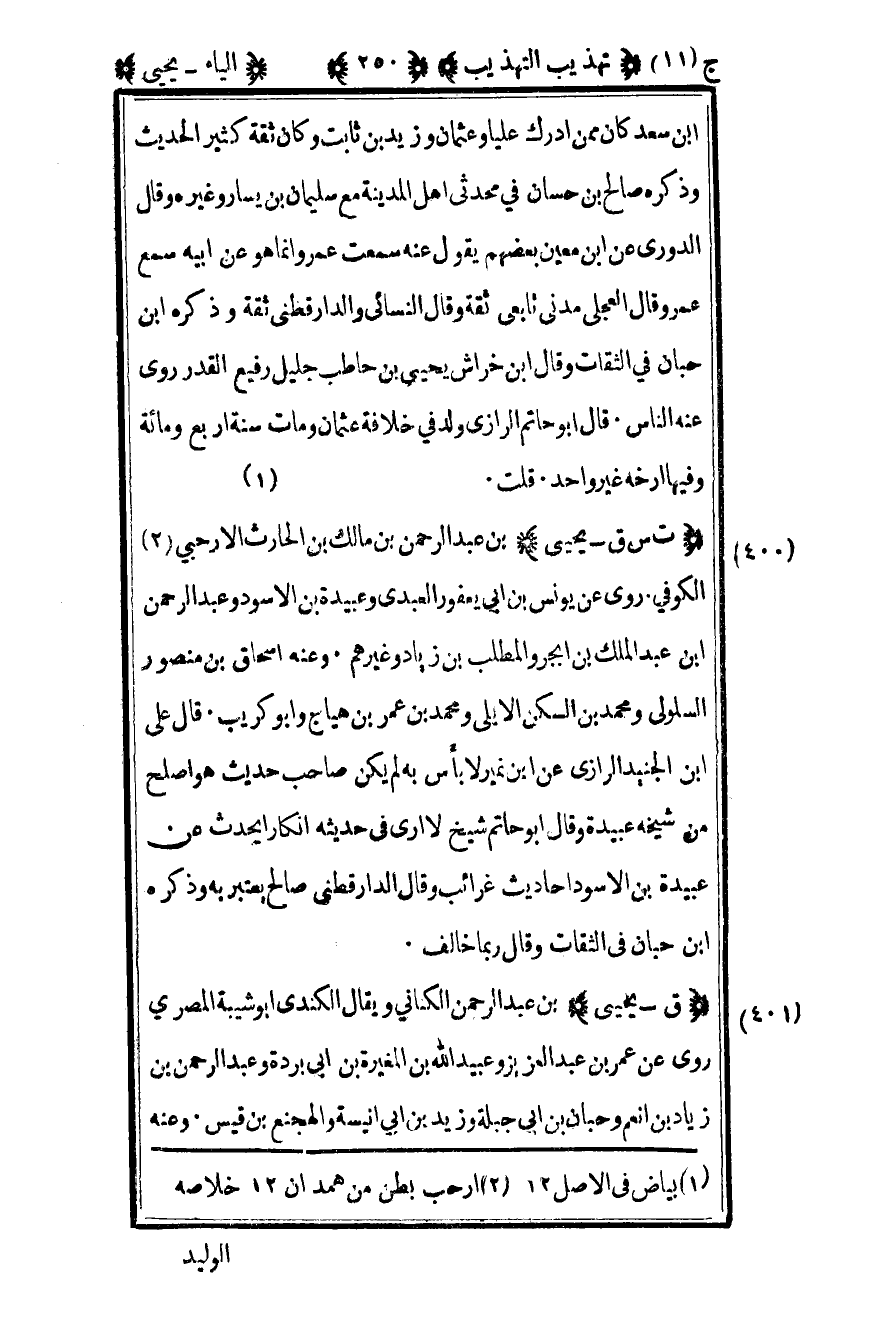 ج (١١) ﴿ تهذيب التهذيب ﴾ ﴿ ٢٥٠ ﴾ ﴿ الياء ـ يحيى ﴾
ابن سعد كان ممن ادرك عليا وعثمان وزيد بن ثابت وكان ثقة كثير الحديث
وذكره صالح بن حسان في محدثى اهل المدينة مع سليمان بن يسار وغيره وقال
الدورى عن ابن معين بعضهم يقول عنه سمعت عمر وانما هو عن ابيه سمع
عمر وقال العجلى مدنى تابعى ثقة وقال النسائى والدارقطنى ثقة وذكره ابن
حبان في الثقات وقال ابن خراش يحيى بن حاطب جليل رفيع القدر روى
عنه الناس ٠ قال ابو حاتم الرازى ولد في خلافة عثمان ومات سنة اربع ومائة
وفيها ارخه غير واحد ٠ قلت ٠ (١)
﴿ ت س ق ـ يحيى ﴾ بن عبد الرحمن بن مالك بن الحارث الارحبي (٢) (٤٠٠)
الكوفي ٠ روى عن يونس بن ابي يعفور العبدى وعبيدة بن الاسود وعبد الرحمن
ابن عبد الملك بن ابجر والمطلب بن زياد وغيرهم ٠ وعنه اسحاق بن منصور
السلولى ومحمد بن السكن الايلى ومحمد بن عمر بن هياج وابو كريب ٠ قال على
ابن الجنيد الرازى عن ابن نمير لا بأس به لم يكن صاحب حديث هو اصلح
من شيخه عبيدة وقال ابو حاتم شيخ لا ارى فى حديثه انكارا يحدث عن
عبيدة بن الاسود احاديث غرائب وقال الدارقطنى صالح يعتبر به وذكره
ابن حبان فى الثقات وقال ربما خالف ٠
﴿ ق ـ يحيى ﴾ بن عبد الرحمن الكناني ويقال الكندى ابو شيبة المصري (٤٠١)
روى عن عمر بن عبد العزيز وعبيد الله بن المغيرة بن ابى بردة وعبد الرحمن بن
زياد بن انعم وحبان بن ابي جبلة وزيد بن ابي انيسة والهجنع بن قيس ٠ وعنه
(١) بياض فى الاصل ١٢ (٢) ارحب بطن من همدان ١٢ خلاصه
الوليد